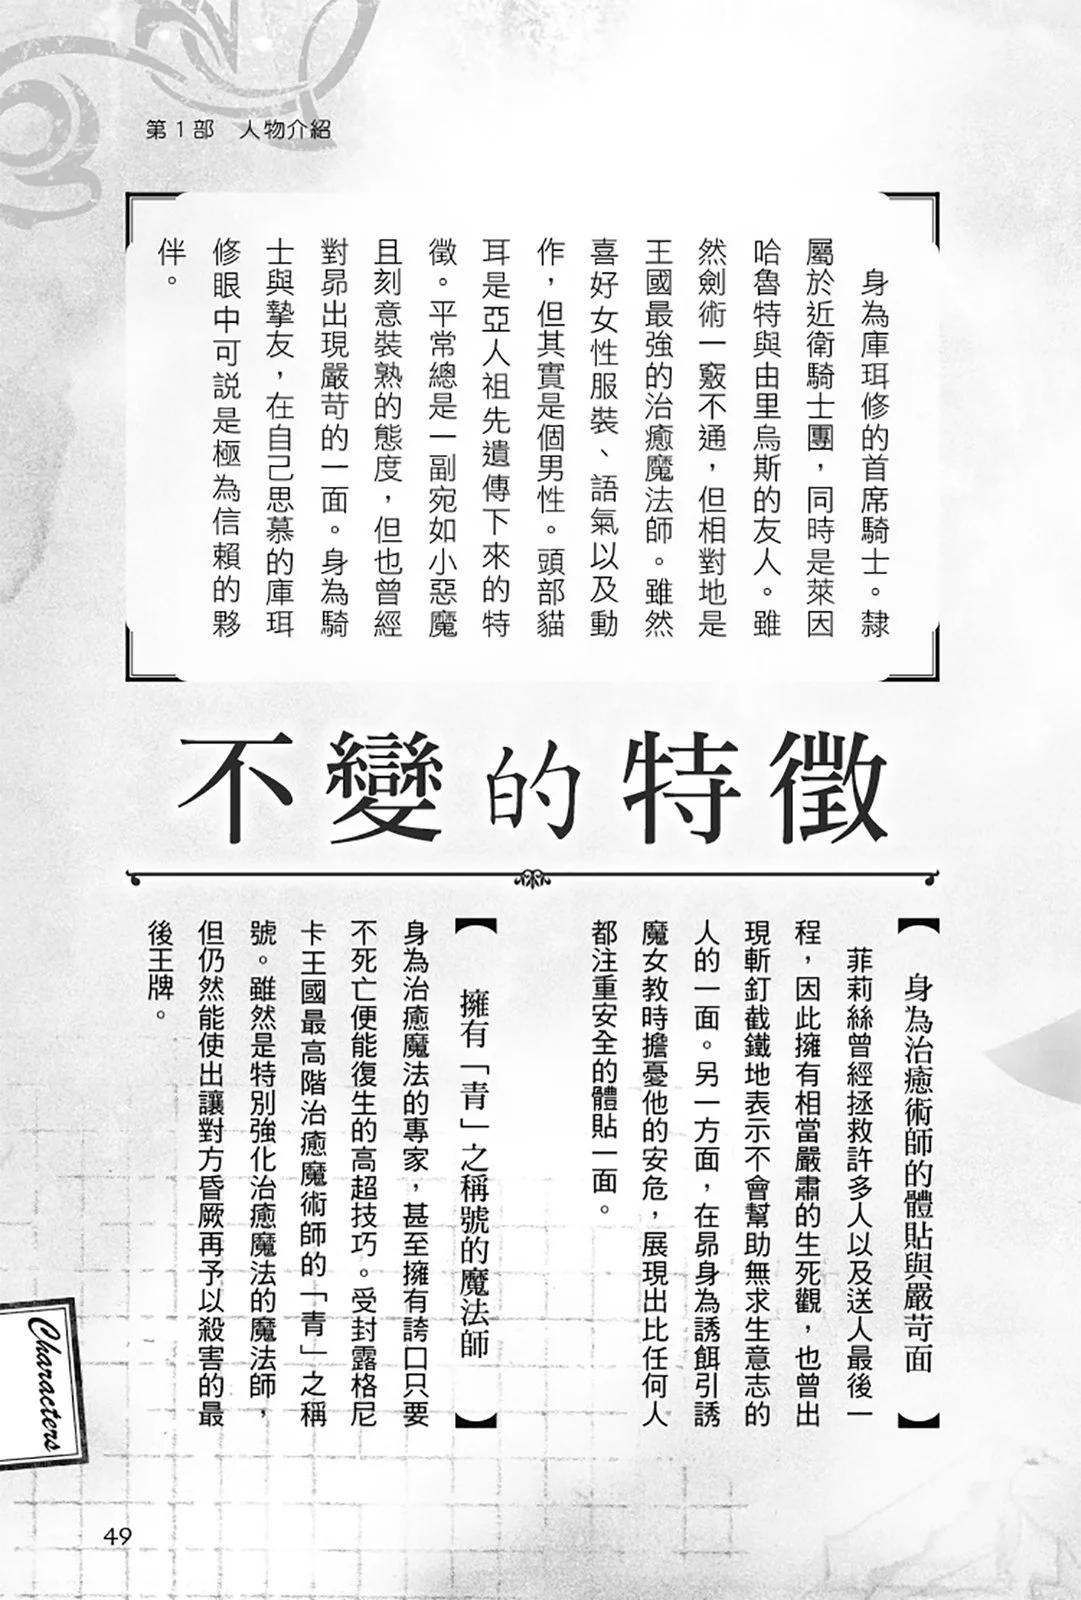 第1部　人物介紹
身為庫珥修的首席騎士。隸
屬於近衛騎士團，同時是萊因
哈魯特與由里烏斯的友人。雖
然劍術一竅不通，但相對地是
王國最強的治癒魔法師。雖然
喜好女性服裝、語氣以及動
作，但其實是個男性。頭部貓
耳是亞人祖先遺傳下來的特
徵。平常總是一副宛如小惡魔
且刻意裝熟的態度，但也曾經
對昴出現嚴苛的一面。身為騎
士與摯友，在自己思慕的庫珥
修眼中可說是極為信賴的夥
伴。
不變的特徵
【身為治癒術師的體貼與嚴苛面】
菲莉絲曾經拯救許多人以及送人最後一
程，因此擁有相當嚴肅的生死觀，也曾出
現斬釘截鐵地表示不會幫助無求生意志的
人的一面。另一方面，在昴身為誘餌引誘
魔女教時擔憂他的安危，展現出比任何人
都注重安全的體貼一面。
【擁有「青」之稱號的魔法師】
身為治癒魔法的專家，甚至擁有誇口只要
不死亡便能復生的高超技巧。受封露格尼
卡王國最高階治癒魔術師的「青」之稱
號。雖然是特別強化治癒魔法的魔法師，
但仍然能使出讓對方昏厥再予以殺害的最
後王牌。
Characters
49